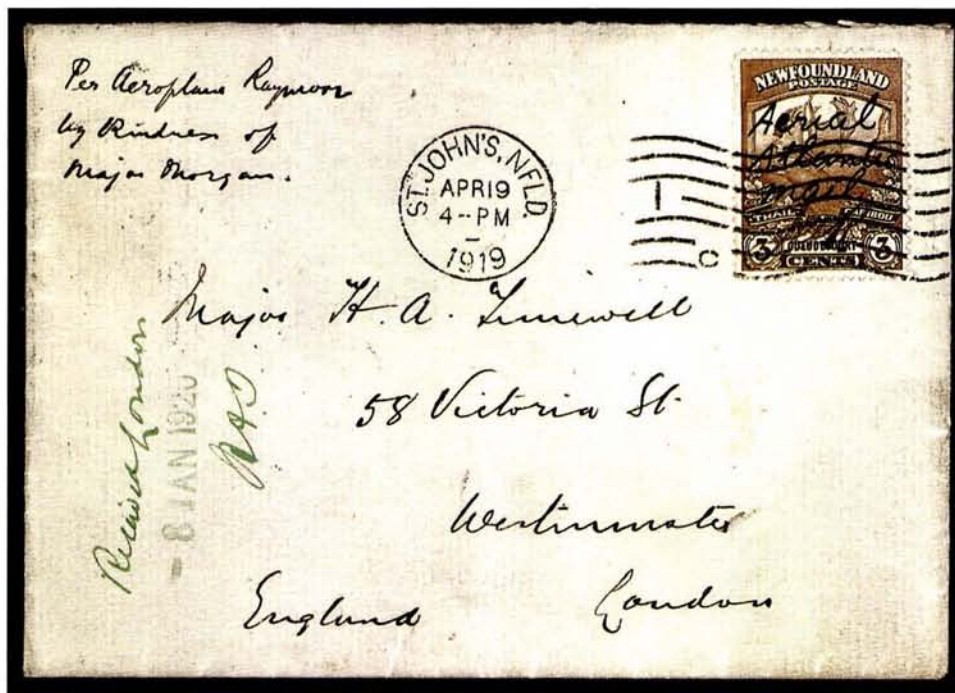 Per Aeroplane Raynor
by Kindness of
Major Morgan.
ST. JOHN'S, NFLD.
APR 19
4--PM
1919
NEWFOUNDLAND
POSTAGE
Aerial
Atlantic
Mail
TRAIL OF THE CARIBOU
3 3
CENTS
Major H. A. Timewell
58 Victoria St.
Westminster
London
England
Received London
8 JAN 1920